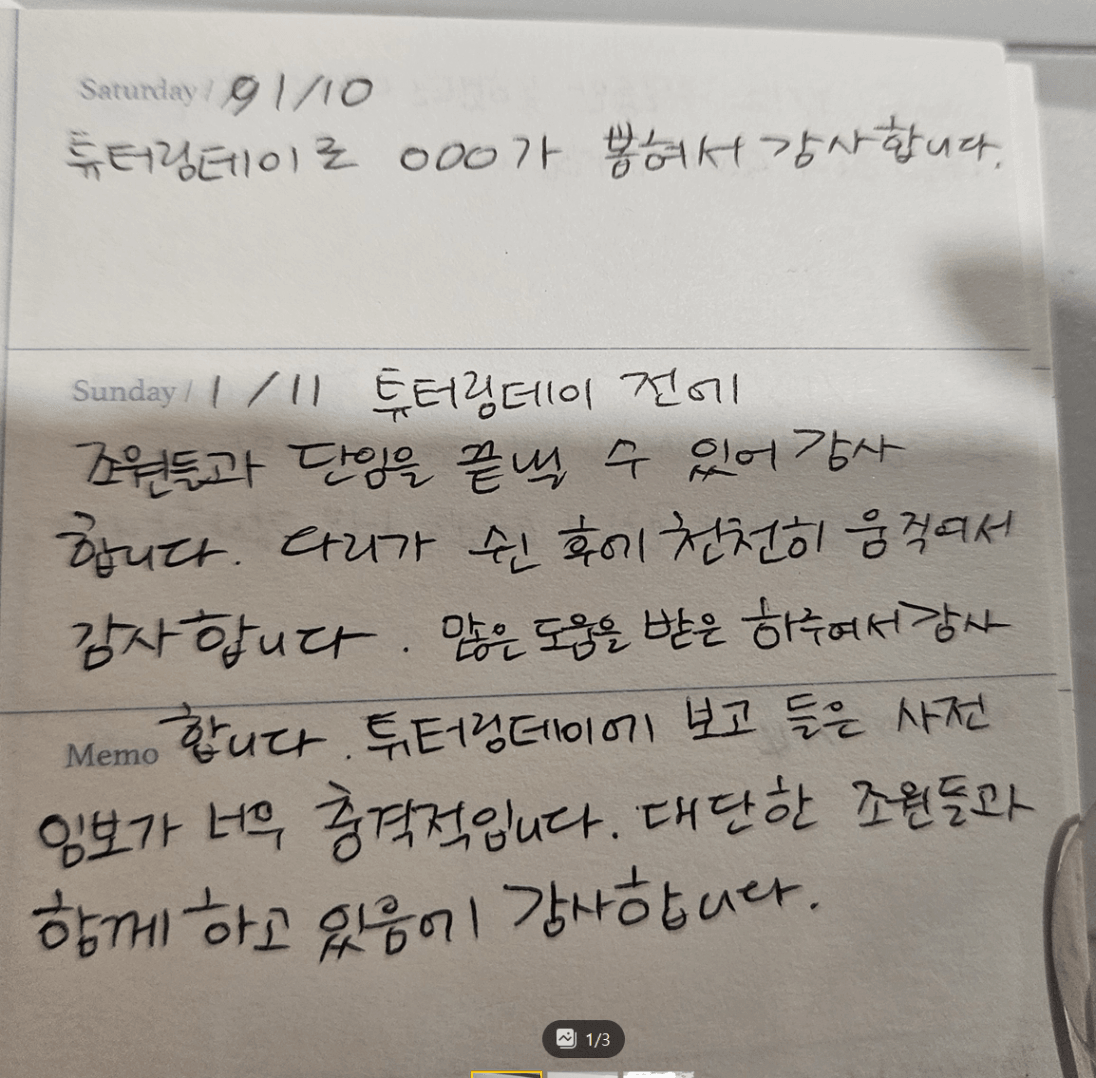 Saturday / 91/10
튜터링데이로 000가 뽑혀서 감사합니다.
Sunday / 1/11 튜터링데이 전에
조원들과 단임을 끝낼 수 있어 감사
합니다. 다리가 쉰 후에 천천히 움직여서
감사합니다. 많은 도움을 받은 하주여서 감사
Memo 합니다. 튜터링데이에 보고 들은 사전
임보가 너무 충격적입니다. 대단한 조원들과
함께 하고 있음에 감사합니다.
1/3